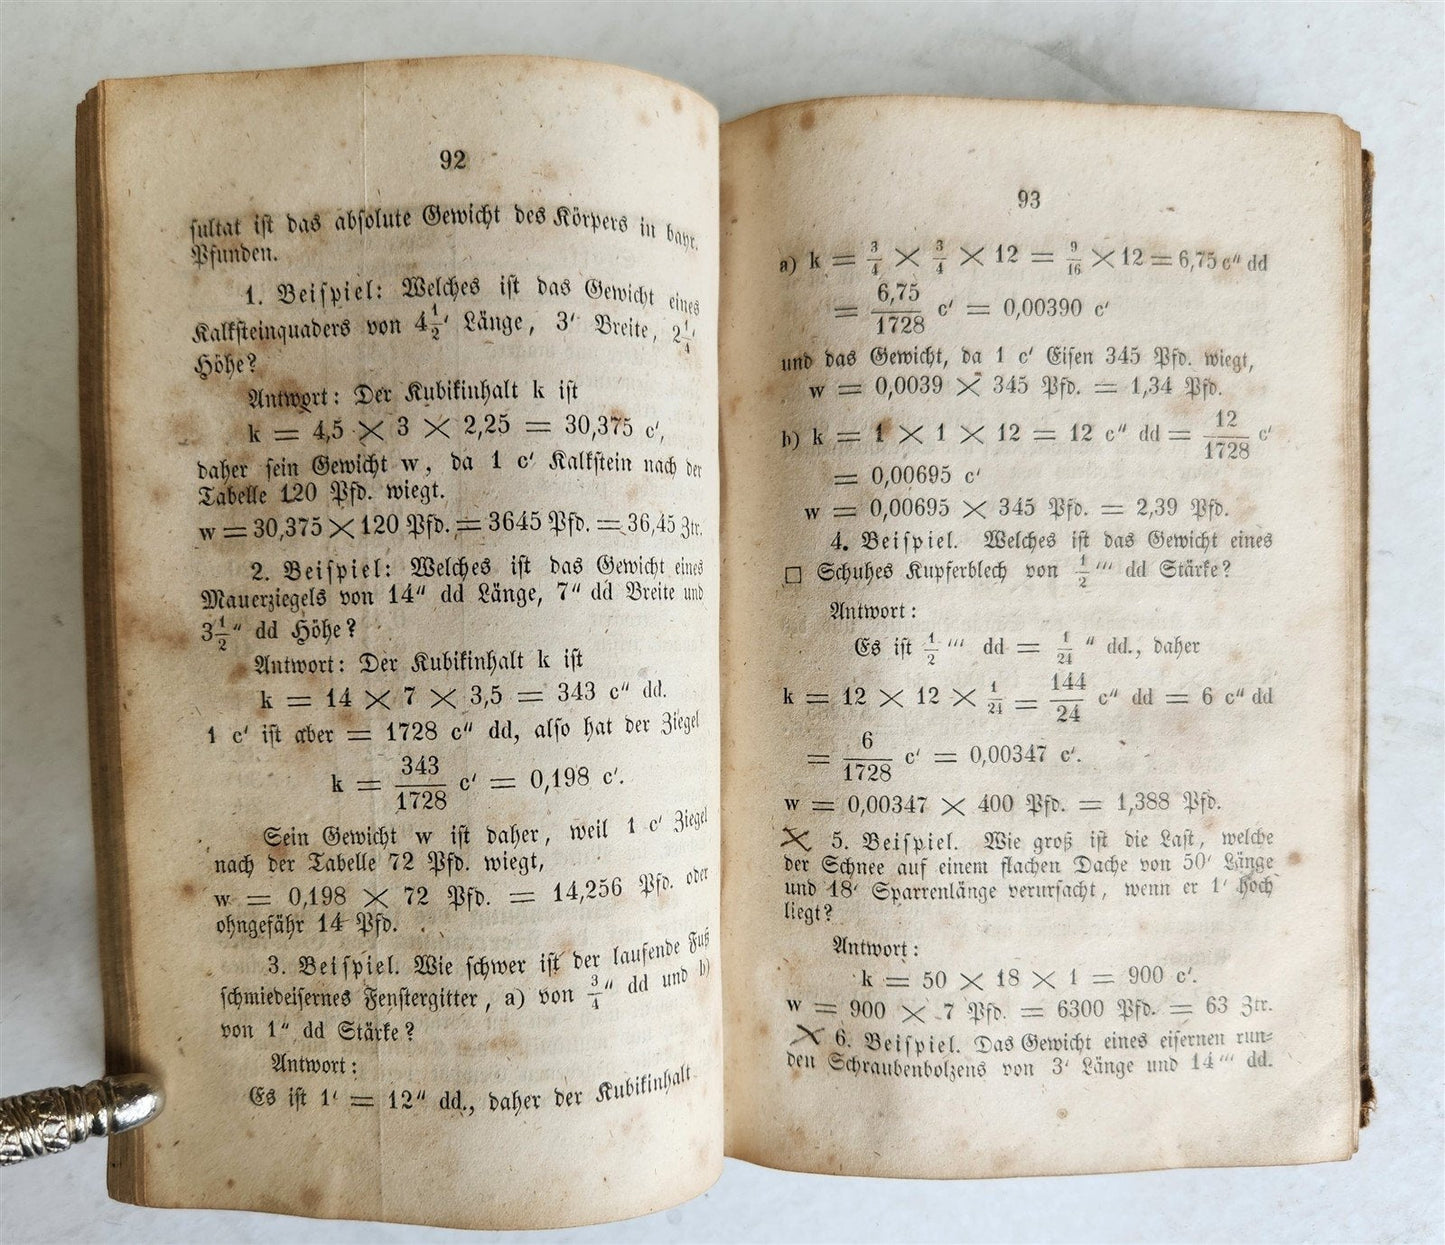 92
sultat ist das absolute Gewicht des Körpers in bayr.
Pfunden.
1. Beispiel: Welches ist das Gewicht eines
Kalksteinquaders von 4½′ Länge, 3′ Breite, 2¼′
Höhe?
Antwort: Der Kubikinhalt k ist
k = 4,5 × 3 × 2,25 = 30,375 c′,
daher sein Gewicht w, da 1 c′ Kalkstein nach der
Tabelle 120 Pfd. wiegt.
w = 30,375 × 120 Pfd. = 3645 Pfd. = 36,45 Ztr.
2. Beispiel: Welches ist das Gewicht eines
Mauerziegels von 14″ dd Länge, 7″ dd Breite und
3½″ dd Höhe?
Antwort: Der Kubikinhalt k ist
k = 14 × 7 × 3,5 = 343 c″ dd.
1 c′ ist aber = 1728 c″ dd, also hat der Ziegel
k = 343/1728 c′ = 0,198 c′.
Sein Gewicht w ist daher, weil 1 c′ Ziegel
nach der Tabelle 72 Pfd. wiegt,
w = 0,198 × 72 Pfd. = 14,256 Pfd. oder
ohngefähr 14 Pfd.
3. Beispiel. Wie schwer ist der laufende Fuß
schmiedeisernes Fenstergitter, a) von ¾″ dd und b)
von 1″ dd Stärke?
Antwort:
Es ist 1′ = 12″ dd., daher der Kubikinhalt
93
a) k = 3/4 × 3/4 × 12 = 9/16 × 12 = 6,75 c″ dd
= 6,75/1728 c′ = 0,00390 c′
und das Gewicht, da 1 c′ Eisen 345 Pfd. wiegt,
w = 0,0039 × 345 Pfd. = 1,34 Pfd.
b) k = 1 × 1 × 12 = 12 c″ dd = 12/1728 c′
= 0,00695 c′
w = 0,00695 × 345 Pfd. = 2,39 Pfd.
4. Beispiel. Welches ist das Gewicht eines
□ Schuhes Kupferblech von ½‴ dd Stärke?
Antwort:
Es ist ½‴ dd = 1/24 ″ dd., daher
k = 12 × 12 × 1/24 = 144/24 c″ dd = 6 c″ dd
= 6/1728 c′ = 0,00347 c′.
w = 0,00347 × 400 Pfd. = 1,388 Pfd.
× 5. Beispiel. Wie groß ist die Last, welche
der Schnee auf einem flachen Dache von 50′ Länge
und 18′ Sparrenlänge verursacht, wenn er 1′ hoch
liegt?
Antwort:
k = 50 × 18 × 1 = 900 c′.
w = 900 × 7 Pfd. = 6300 Pfd. = 63 Ztr.
× 6. Beispiel. Das Gewicht eines eisernen run-
den Schraubenbolzens von 3′ Länge und 14‴ dd.